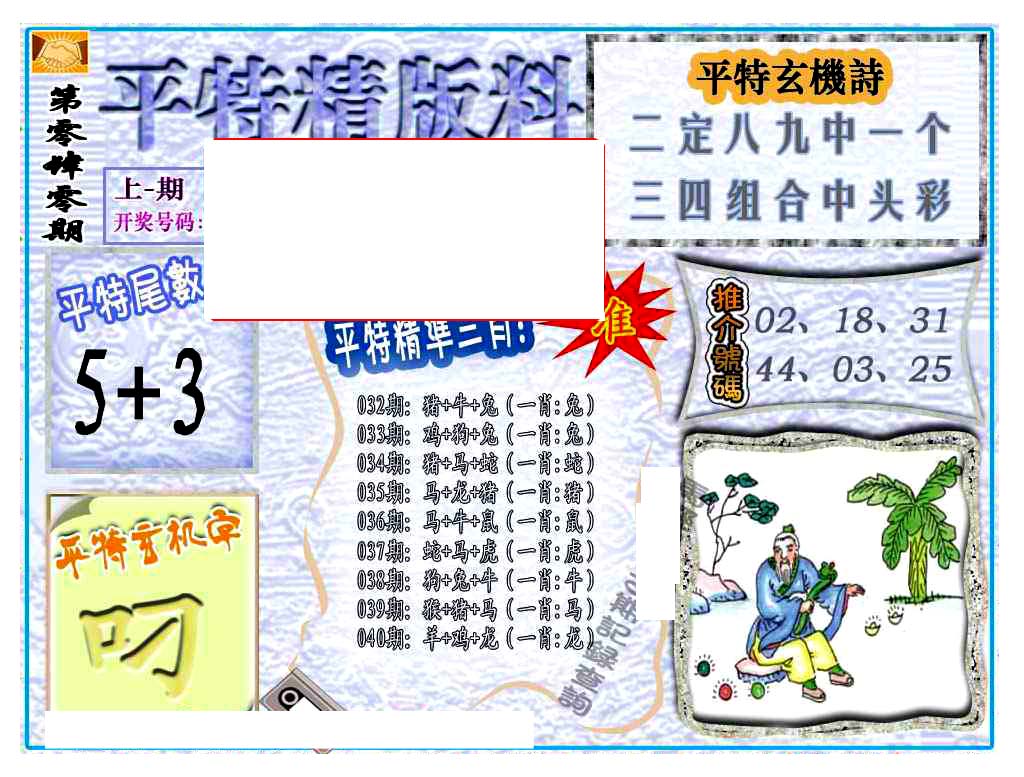 平特精版料
第零肆零期
上-期
开奖号码:
平特玄機詩
二定八九中一个
三四组合中头彩
平特尾數
5+3
平特精準三肖!
准
推介號碼
02、18、31
44、03、25
032期: 猪+牛+兔 (一肖:兔)
033期: 鸡+狗+兔 (一肖:兔)
034期: 猪+马+蛇 (一肖:蛇)
035期: 马+龙+猪 (一肖:猪)
036期: 马+牛+鼠 (一肖:鼠)
037期: 蛇+马+虎 (一肖:虎)
038期: 狗+兔+牛 (一肖:牛)
039期: 猴+猪+马 (一肖:马)
040期: 羊+鸡+龙 (一肖:龙)
平特玄机字
叼
期記録查詢